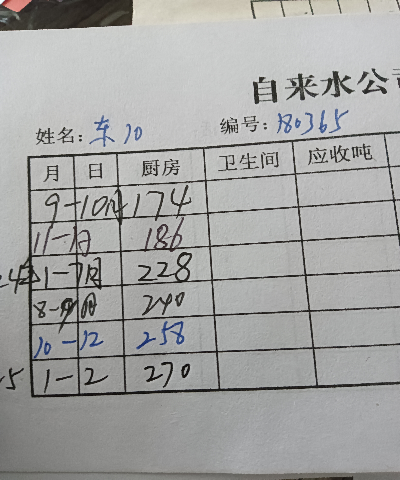 自来水公司
姓名: 东10 编号: 180365
月 日 厨房 卫生间 应收吨
9-10月 174
11-1月 186
24年 1-7月 228
8-9月 240
10-12 258
25 1-2 270